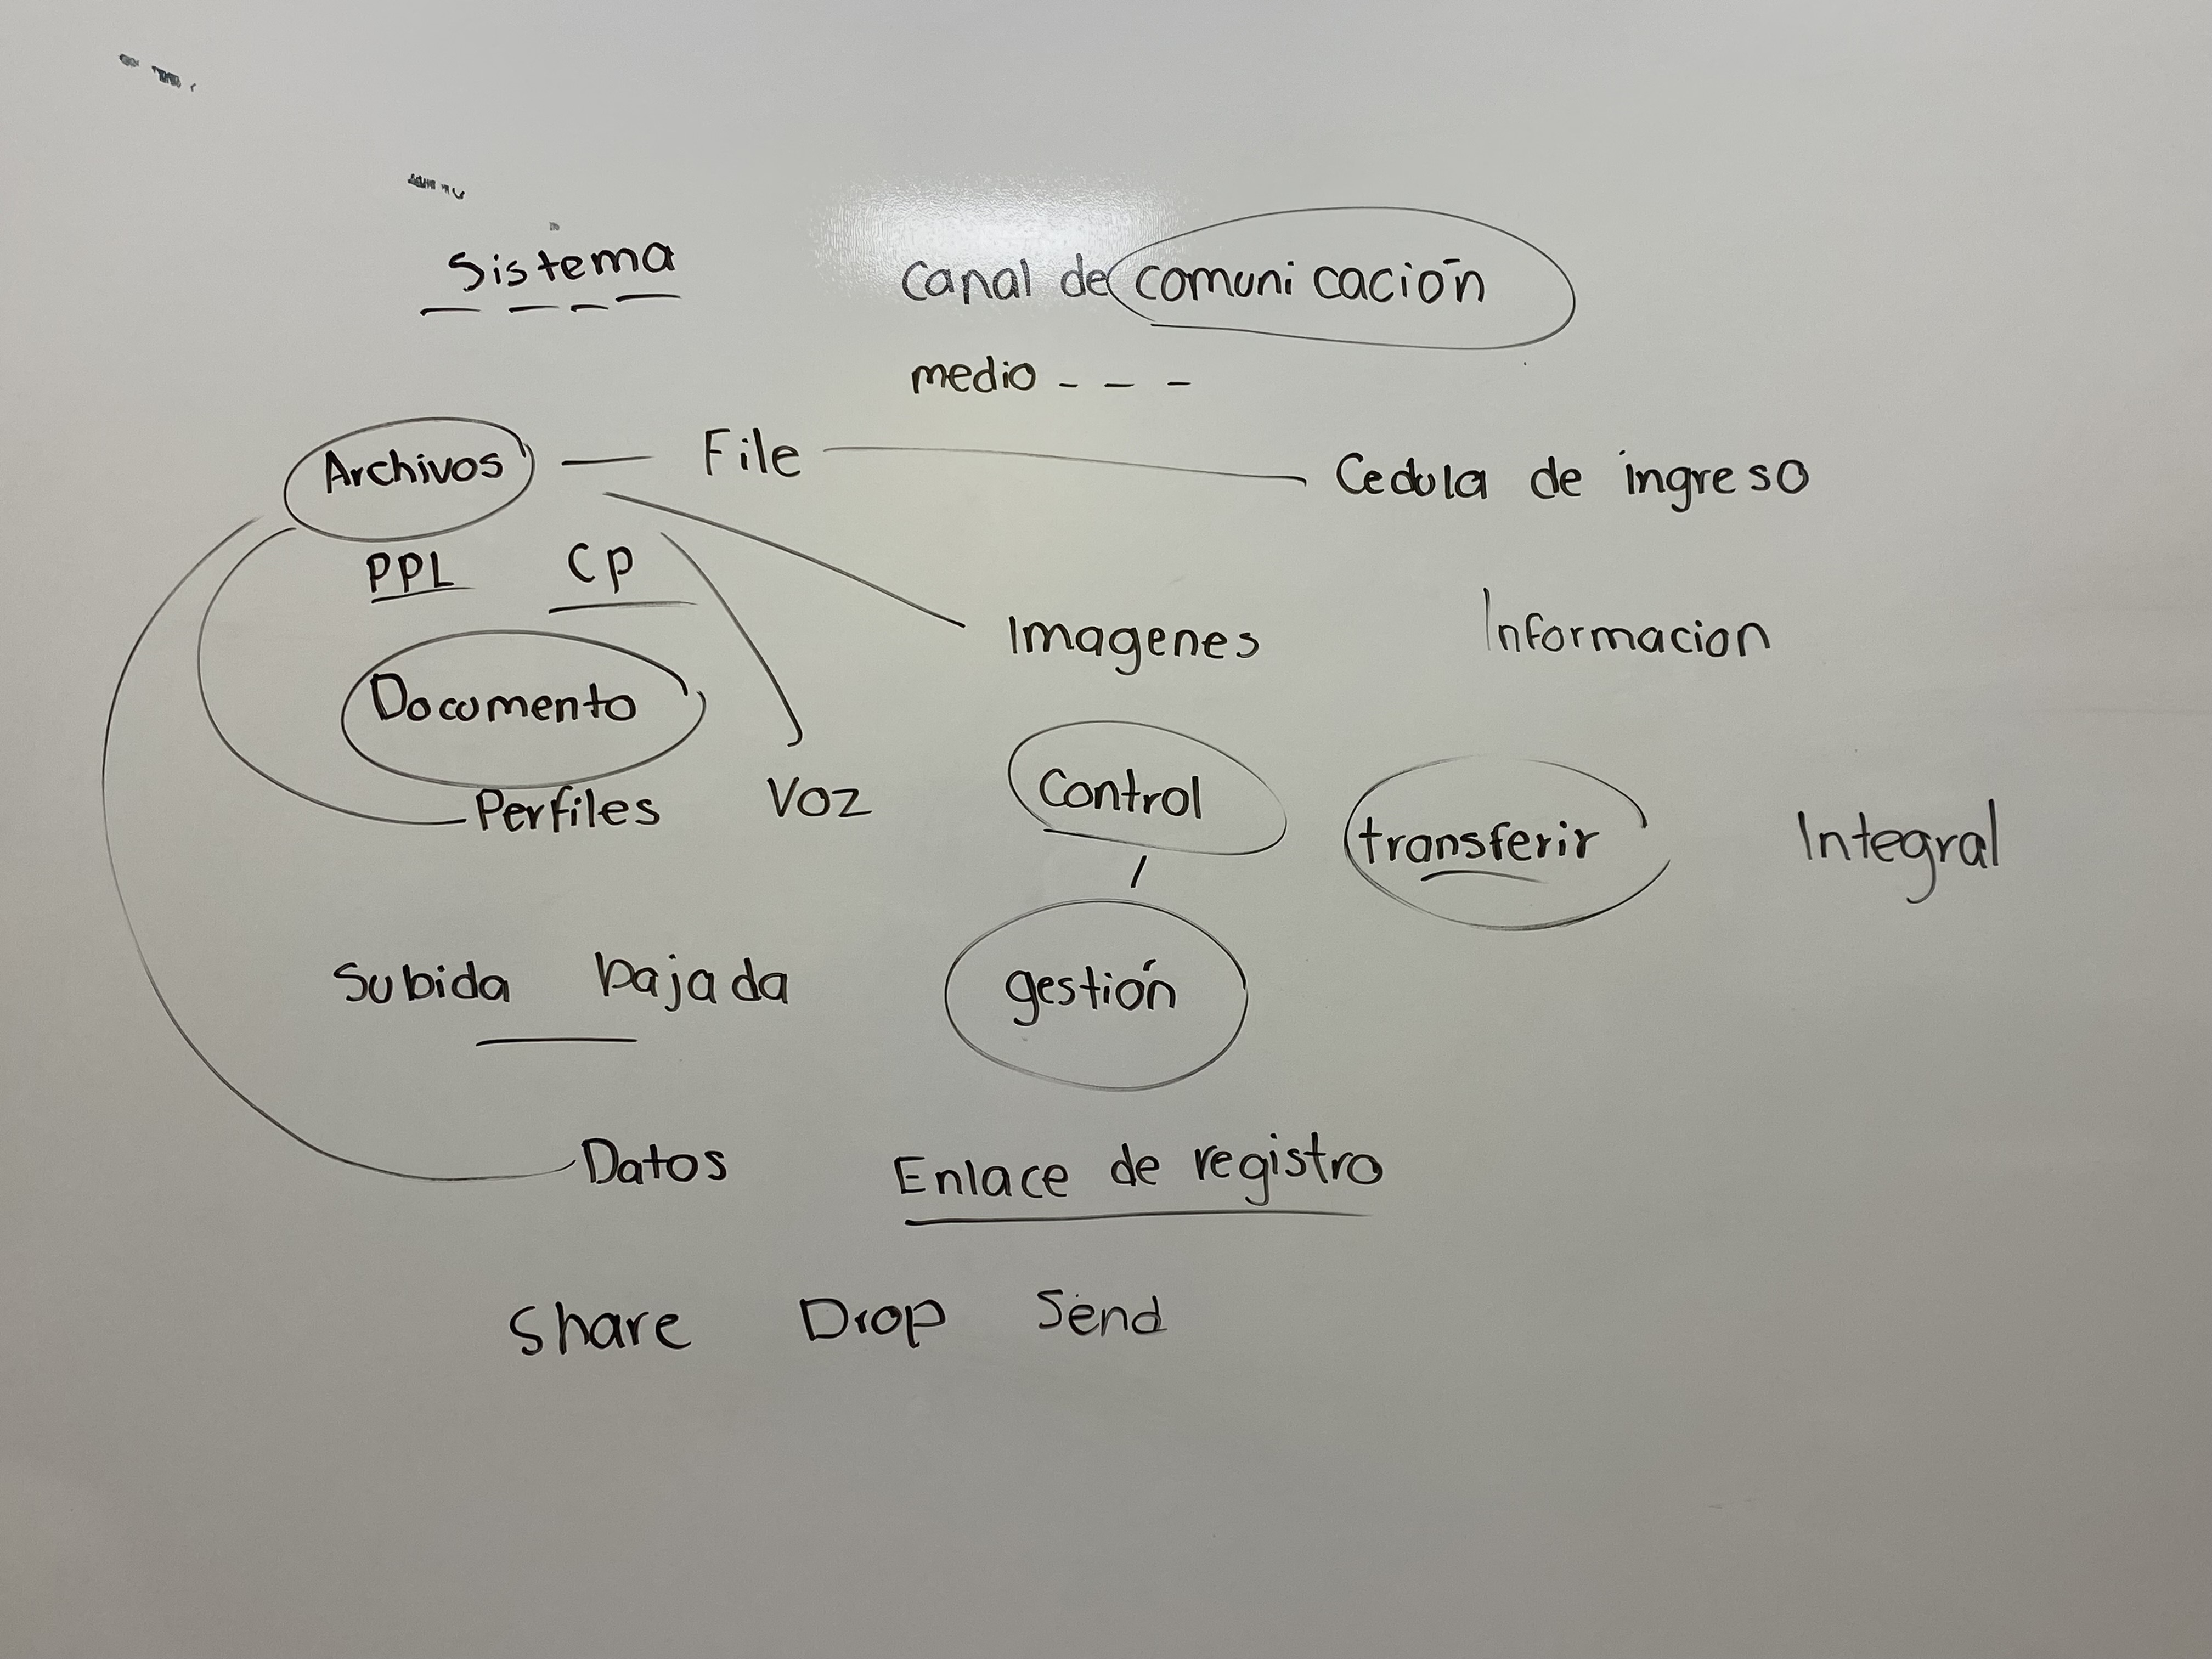 Sistema
Canal de comunicación
medio - - -
Archivos — File — Cedula de ingreso
PPL CP
Imagenes Informacion
Documento
Perfiles Voz Control transferir Integral
Subida bajada gestión
Datos Enlace de registro
Share Drop Send